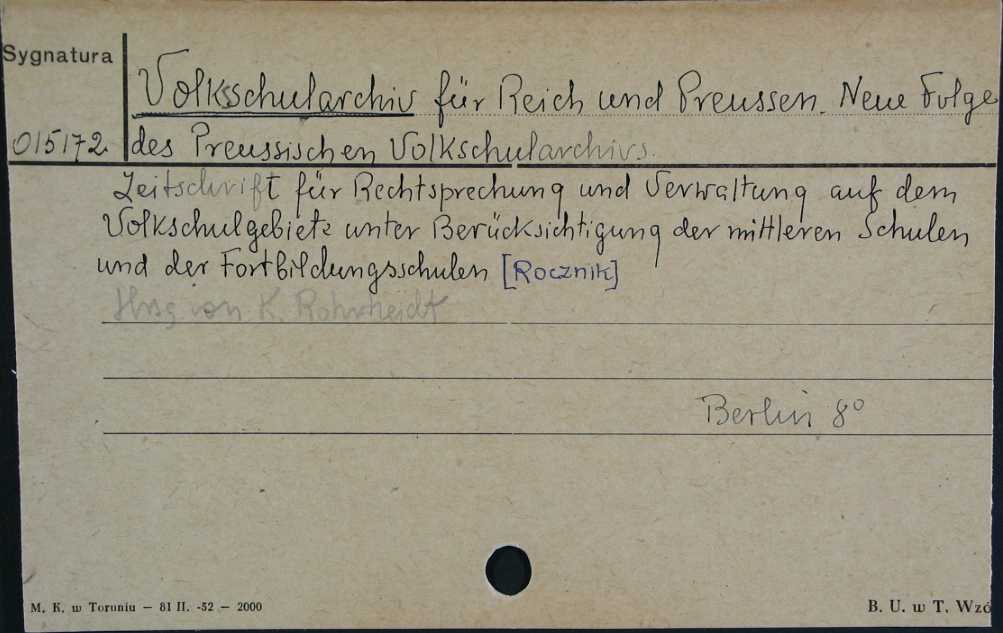 Sygnatura
Volksschularchiv für Reich und Preussen. Neue Folge
015172 des Preussischen Volkschularchivs.
Zeitschrift für Rechtsprechung und Verwaltung auf dem
Volkschulgebiete unter Berücksichtigung der mittleren Schulen
und der Fortbildungsschulen [Rocznik]
Hrsg von K. Rohrscheidt
Berlin 8°
M. K. w Toruniu — 81 II. -52 — 2000
B. U. w T. Wzó